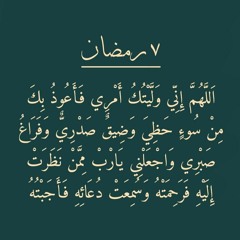 ٧ رمضان
اَللَّهُمَّ إِنِّي وَلَّيْتُكَ أَمْرِي فَأَعُوذُ بِكَ
مِنْ سُوءٍ حَظِيَ وَضِيقَ صَدْرِيٌّ وَفَرَاغُ
صَبْرِي وَاجْعَلْنِي يَارَبْ مِمَّنْ نَظَرَتْ
إِلَيْهِ فَرَحِمَتْهُ وَسُمِعَتْ دُعَائِهِ فَأَجَبْتُهُ